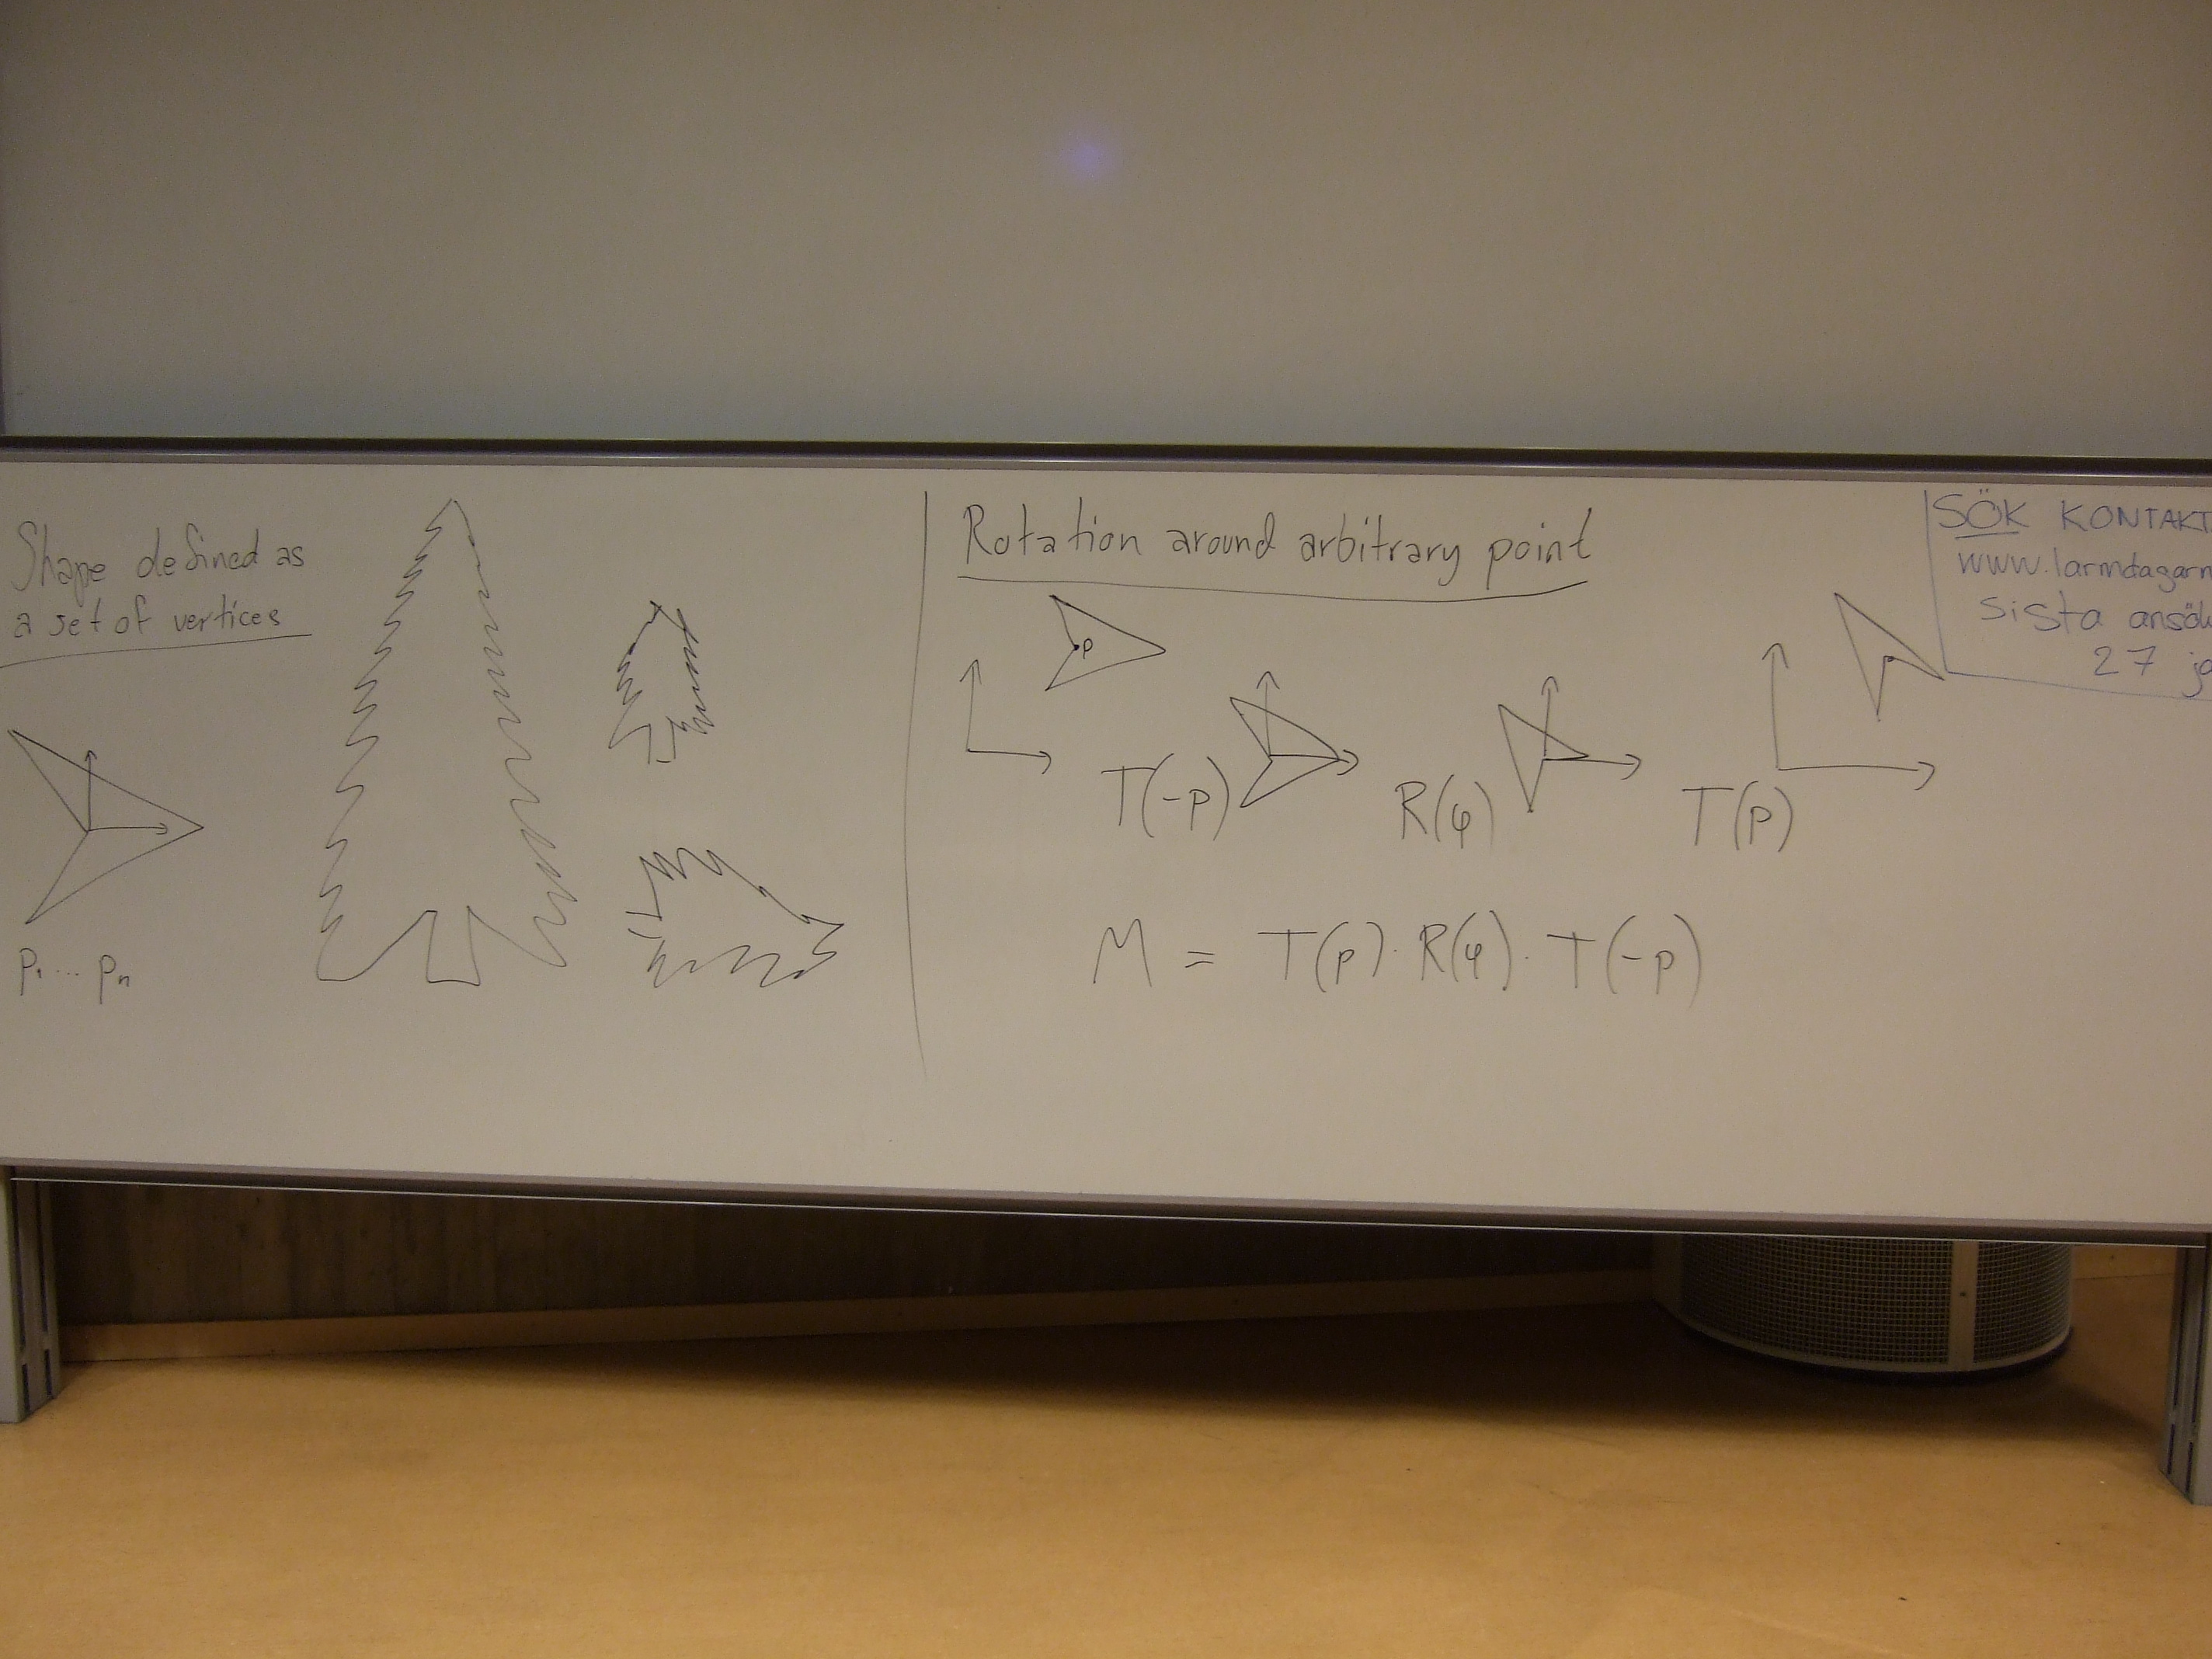 Shape defined as
a set of vertices
p₁ ... pₙ
Rotation around arbitrary point
p
T(-p)
R(φ)
T(p)
M = T(p) · R(φ) · T(-p)
SÖK KONTAKT
www.larmdagarn
Sista ansök
27 ja